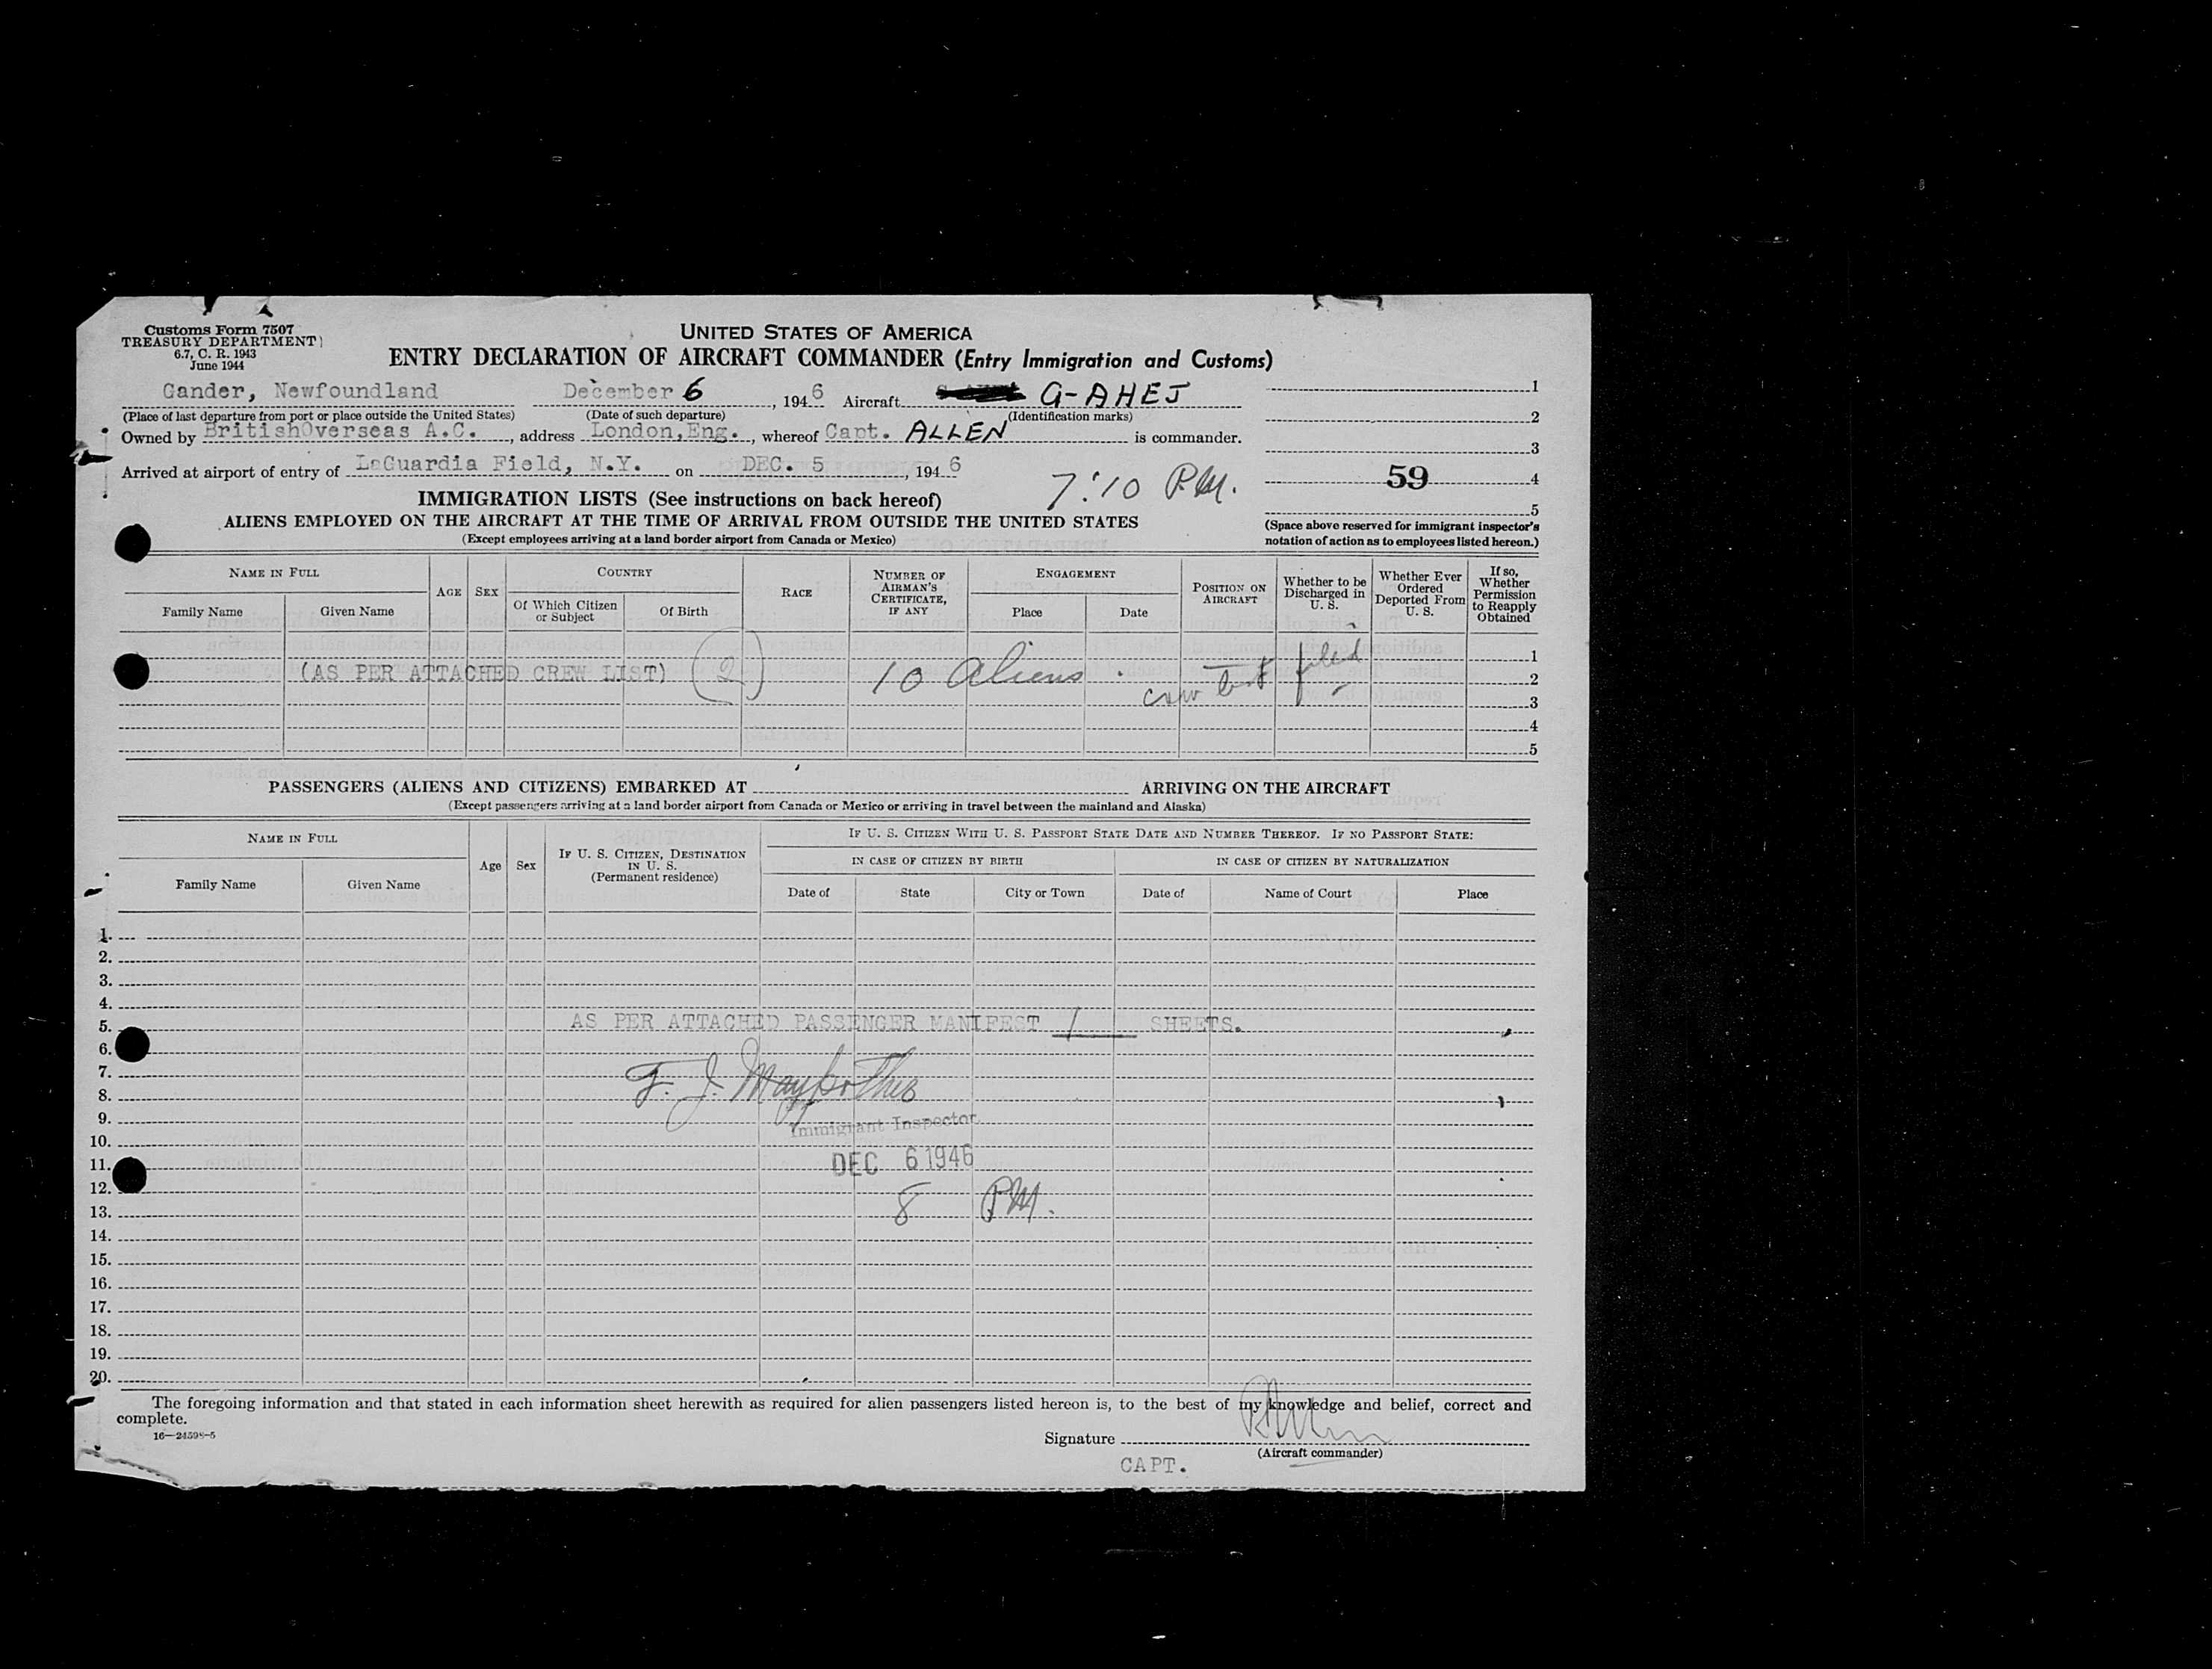 Customs Form 7507
TREASURY DEPARTMENT
6.7, C. R. 1943
June 1944
UNITED STATES OF AMERICA
ENTRY DECLARATION OF AIRCRAFT COMMANDER (Entry Immigration and Customs)
Gander, Newfoundland December 6, 1946 Aircraft G-AHEJ
(Place of last departure from port or place outside the United States) (Date of such departure) (Identification marks)
Owned by BritishOverseas A.C., address London,Eng., whereof Capt. ALLEN is commander.
Arrived at airport of entry of LaGuardia Field, N.Y. on DEC. 5, 1946
7:10 P.M.
1
2
3
59 4
5
(Space above reserved for immigrant inspector's
notation of action as to employees listed hereon.)
IMMIGRATION LISTS (See instructions on back hereof)
ALIENS EMPLOYED ON THE AIRCRAFT AT THE TIME OF ARRIVAL FROM OUTSIDE THE UNITED STATES
(Except employees arriving at a land border airport from Canada or Mexico)
NAME IN FULL AGE SEX COUNTRY RACE NUMBER OF AIRMAN'S CERTIFICATE, IF ANY ENGAGEMENT POSITION ON AIRCRAFT Whether to be Discharged in U. S. Whether Ever Ordered Deported From U. S. If so, Whether Permission to Reapply Obtained
Family Name Given Name Of Which Citizen or Subject Of Birth Place Date
1
(AS PER ATTACHED CREW LIST) (2) 10 Aliens. crew list filed 2
3
4
5
PASSENGERS (ALIENS AND CITIZENS) EMBARKED AT ARRIVING ON THE AIRCRAFT
(Except passengers arriving at a land border airport from Canada or Mexico or arriving in travel between the mainland and Alaska)
NAME IN FULL Age Sex IF U. S. CITIZEN, DESTINATION IN U. S. (Permanent residence) IF U. S. CITIZEN WITH U. S. PASSPORT STATE DATE AND NUMBER THEREOF. IF NO PASSPORT STATE:
IN CASE OF CITIZEN BY BIRTH IN CASE OF CITIZEN BY NATURALIZATION
Family Name Given Name Date of State City or Town Date of Name of Court Place
1.
2.
3.
4.
5. AS PER ATTACHED PASSENGER MANIFEST 1 SHEETS.
6.
7.
8. F. J.
9. Immigrant Inspector
10.
11. DEC 6 1946
12.
13. 8 PM.
14.
15.
16.
17.
18.
19.
20.
The foregoing information and that stated in each information sheet herewith as required for alien passengers listed hereon is, to the best of my knowledge and belief, correct and
complete.
16—24598-5
Signature
(Aircraft commander)
CAPT.